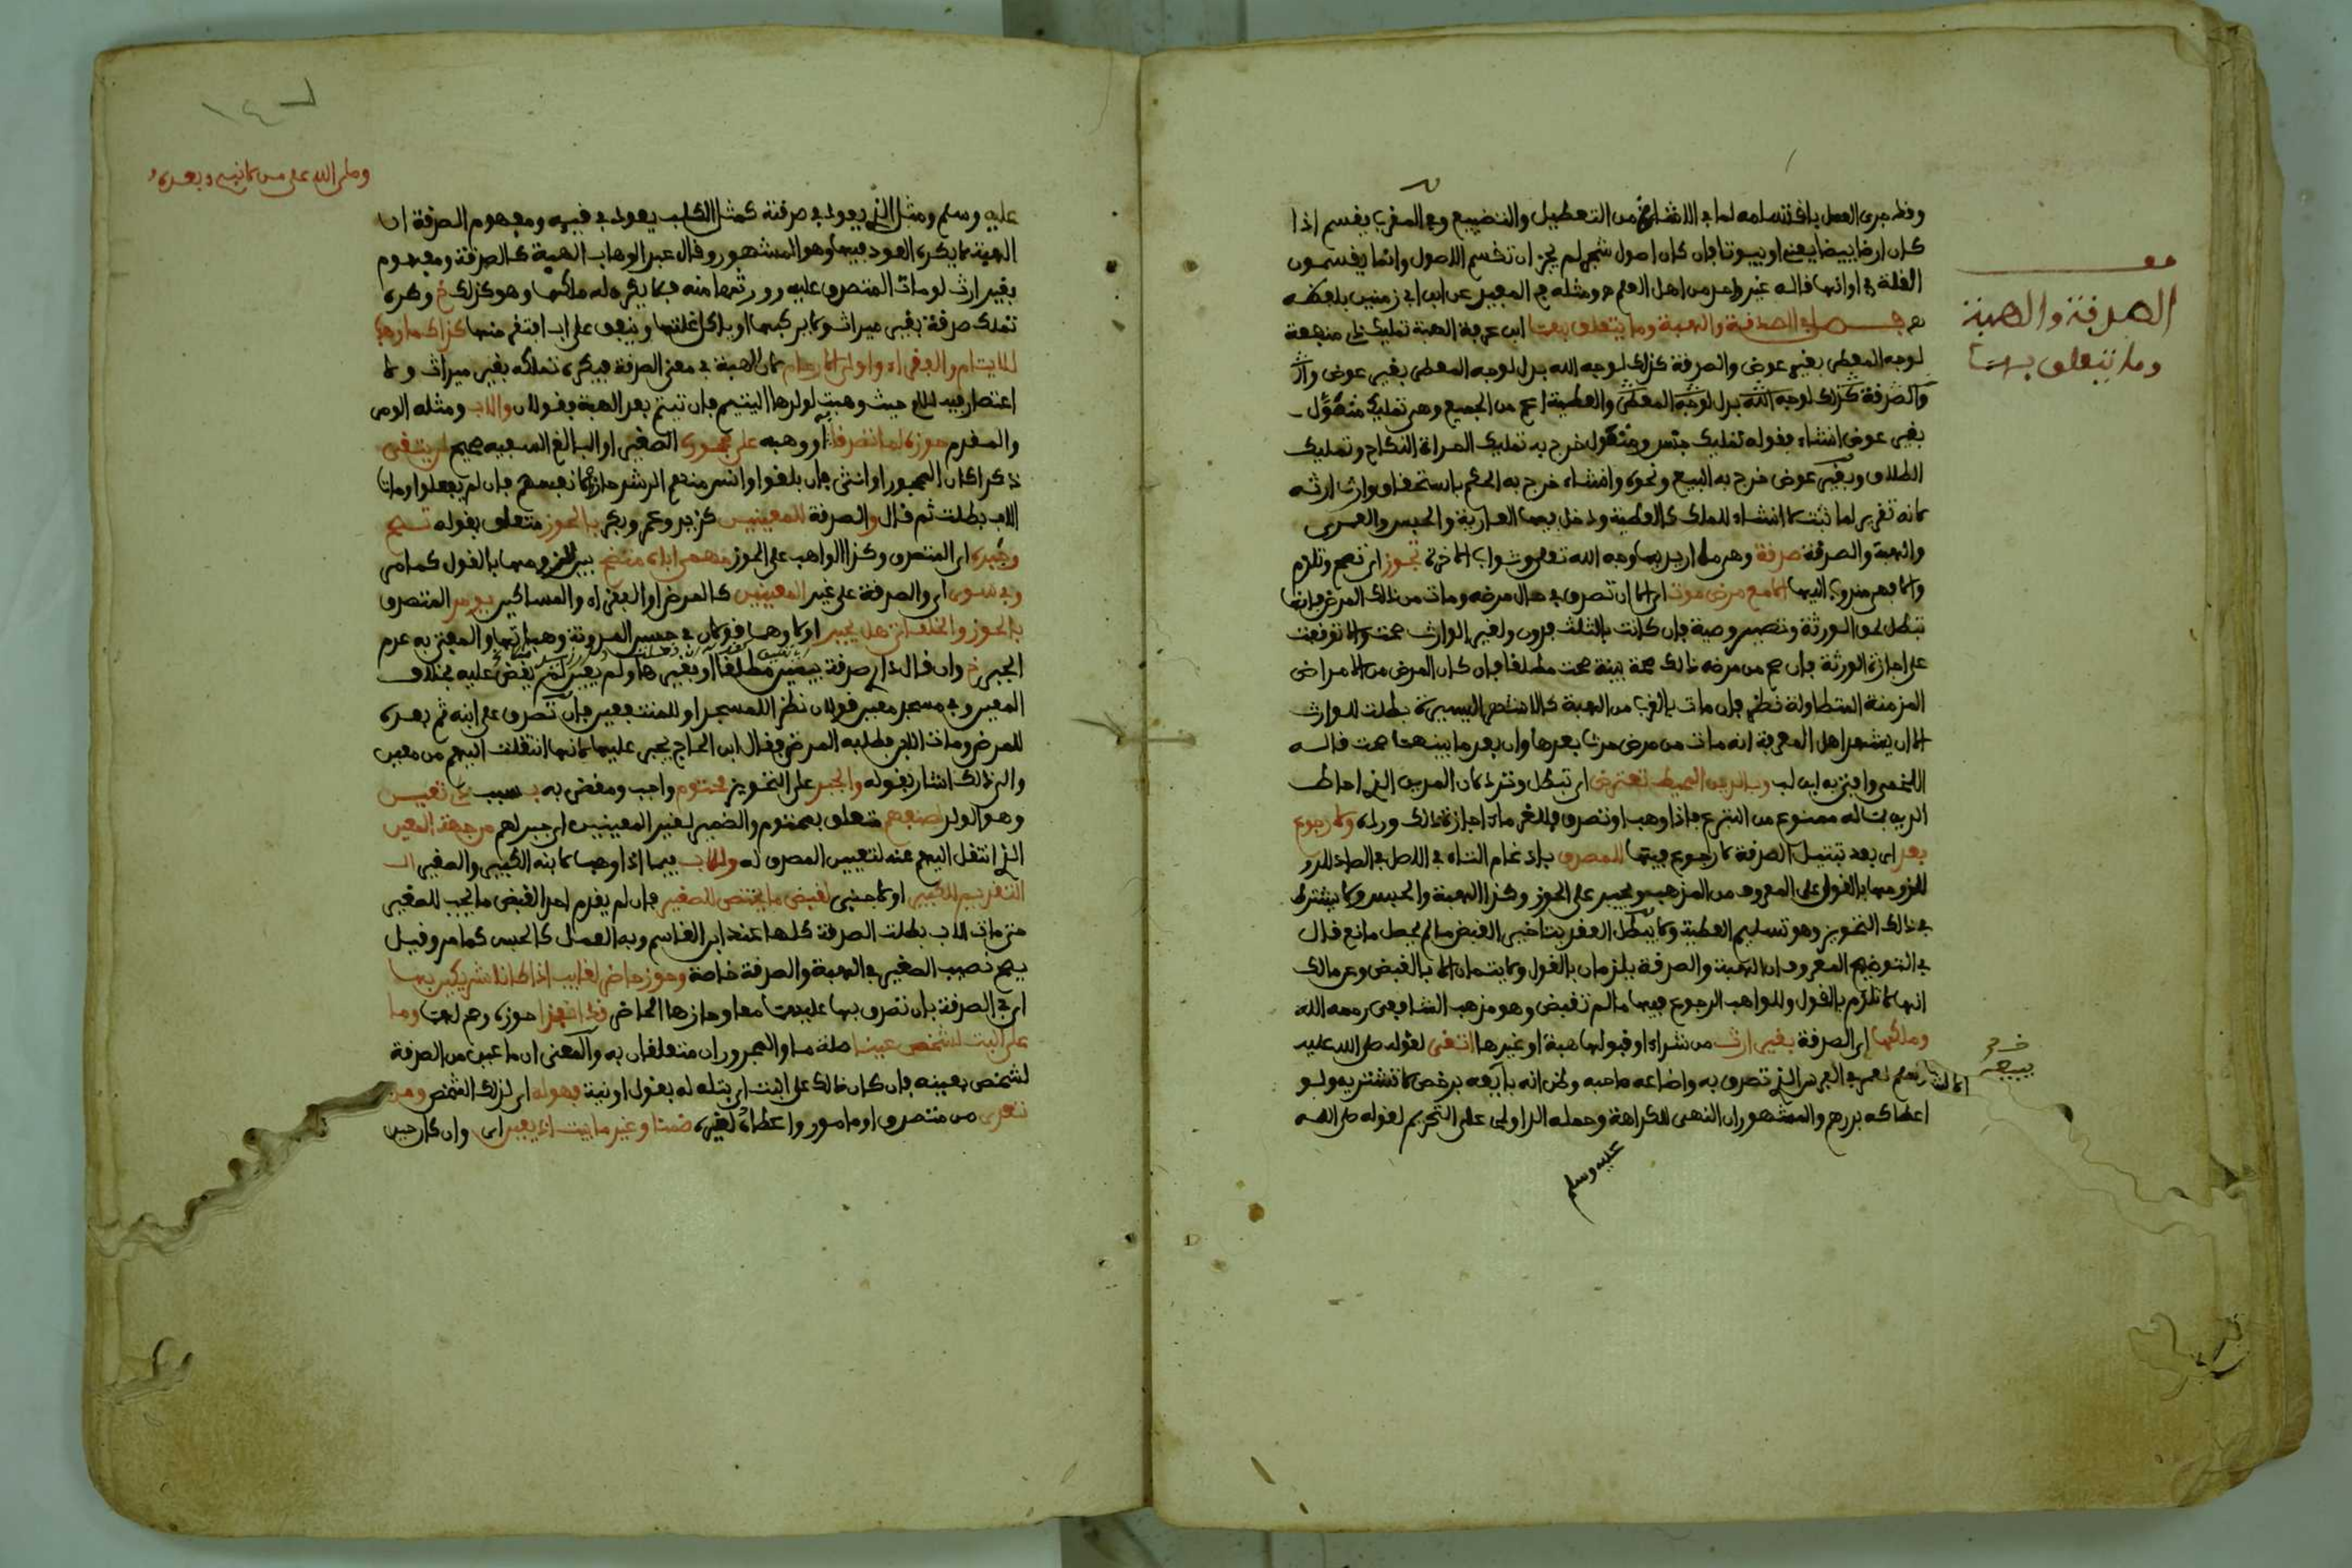 وقد جرى العمل بافتسامه لما في الانشاع من التعطيل والتضييع وفي المفرب يفسم اذا
كان ارضا بيضا يعني او بيوتا فان كان اصول شجر لم يجز ان تفسم الاصول وانما يفسمون
الغلة في اوانها فاله غير واحد من اهل العلم ومثله في المعيد عن ابن ابي زمنين بلفظه
فصل في الصدفة والهبة وما يتعلق بهما ابن عرفة الهبة تمليك ذي منفعة
لوجه المعطى بغير عوض والصدفة كذلك لوجه الله بدل لوجه المعطى بغير عوض
والصدفة كذلك لوجه الله بدل لوجه المعطى والعطية اعم من الجميع وهي تمليك متمول
بغير عوض انشاء فقوله تمليك جنس ومتمول خرج به تمليك المراة النكاح وتمليك
الطلاق وبغير عوض خرج به البيع ونحوه وانشاء خرج به الحكم باستحفاق وارث ارثه
لانه تقرير لما ثبت لا انشاء للملك كالعطية ودخل فيها العارية والحبس والعمرى
والهبة والصدفة صدفة وهي ما اريد بها وجه الله تعلى وثواب الاخرة تجوز اي تصح وتلزم
والا فهي مندوب اليها الا مع مرض موت اي الا ان تصدق في حال مرضه ومات من ذلك المرض فانها
تبطل لحق الورثة وتصير وصية فان كانت بالثلث فدون ولغير الوارث صحت والا توقفت
على اجازة الورثة فان صح من مرضه ذلك صحة بينة صحت مطلقا فان كان المرض من الامراض
المزمنة المتطاولة نظر فان مات بالقرب من الهبة كالاشهر اليسيرة بطلت للوارث
الا ان يشهد اهل المعرفة انه مات من مرض حدث بعدها وان بعد ما بينهما صحت فاله
اللخمي وافتى به ابن لب وبالدين المحيط تعترض اي تبطل وترد لان المدين الذي احاط
الدين بماله ممنوع من التبرع فاذا وهب او تصدق فللغرماء اجازة ذلك ورده ولا رجوع
بعد اي بعد تبتيل الصدفة لا رجوع فيها للمصدق بادغام التاء في الاصل في الصاد للدر
للزومها بالقول على المعروف من المذهب ويجبر على الحوز وكذا الهبة والحبس ولا يشترط
في ذلك التحويز وهو تسليم العطية ولا يبطل العفد بتاخير القبض ما لم يحصل مانع فال
في التوضيح المعروف ان الهبة والصدفة يلزمان بالقول ولا يتمان الا بالقبض وعن مالك
انها لا تلزم بالقول وللواهب الرجوع فيها ما لم تقبض وهو مذهب الشافعي رحمه الله
وملكها اي الصدفة بغير ارث من شراء او قبولها هبة او غيرها اتقى لقوله صلى الله عليه
وسلم لعمر في الفرس الذي تصدق به واضاعه صاحبه وظن انه بايعه برخص لا تشتريه ولو
اعطاكه بدرهم والمشهور ان النهي للكراهة وحمله الداودي على التحريم لقوله صلى الله
عليه وسلم
فف
الصدفة والهبة
وما يتعلق بهما
وصلى الله على من لا نبي بعده
عليه وسلم ومثل الذي يعود في صدفته كمثل الكلب يعود في فيه ومفهوم الصدفة ان
الهبة لا يكره العود فيها وهو المشهور وفال عبد الوهاب الهبة كالصدفة ومفهوم
بغير ارث لو مات المتصدق عليه وورثها منه فلا يكره له ملكها وهو كذلك خ وكره
تملك صدفة بغير ميراث ولا يركبها او ياكل غلتها وينفق على اب افتقر منها كذاك ما وهب
للايتام والفقراء واولي الارحام لان الهبة في معنى الصدفة فيكره تملكه بغير ميراث ولا
اعتصار فيه للاب حيث وهب لولدها اليتيم فان تيتم بعد الهبة فقولان والاب ومثله الوصي
والمفدم حوزه لما تصدقا به او وهبه على محجوره الصغير او البالغ السفيه صحيح لن يتقى
ذكرا كان المحجور او انثى فان بلغوا وانس منهم الرشد حازوا لانفسهم فان لم يفعلوا ومات
الاب بطلت ثم فال والصدفة للمعينين كزيد وعمرو وبكر بالحوز متعلق بقوله تصح
وجبره اي المتصدق وكذا الواهب على الحوز مهما اباه متضح بين للزومها بالقول كما مر
وفي سوى اي والصدفة على غير المعينين كالمرضى او الفقراء والمساكين يومر المتصدق
بالحوز والخلف اتى هل يجبر او لا وهما قولان في حبس المدونة وهباتها والمفتى به عدم
الجبر خ وان فال داري صدفة بيمين مطلقا او بغيرها ولم يعين لم يقض عليه بخلاف
المعين وفي مسجد معين قولان نظرا للمسجد او للمنتفعين فان تصدق على ابنه ثم بعده
للمرضى ومات الابن فطلبه المرضى فقال ابن الحاج يجبر عليها لانها انتقلت اليهم من معين
والى ذلك اشار بقوله والجبر على التحويز محتوم واجب ومقضي به بسبب ذي تعيين
وهو الولد لصنفهم متعلق بمحتوم والضمير لغير المعينين اي جبر لهم من جهة المعين
الذي انتقل اليهم عنه لتعيين المصرف له وللاب فيما اذا وهب لابنه الكبير والصغير ال
التقديم للكبير او لاجنبي لقبض ما يختص للصغير فان لم يقدم احدا لقبض ما يجب للصغير
حتى مات الاب بطلت الصدفة كلها عند ابن القاسم وبه العمل كالحبس كما مر وقيل
يصح نصيب الصغير في الهبة والصدفة خاصة وحوز حاضر لغايب اذا كانا شريكين بها
اي في الصدفة بان تصدق بها عليهما معا وحازها الحاضر قد انفذا حوزه وصح لهما وما
على البت لشخص عينا صلة ما والمجروران متعلقان به والمعنى ان ما عين من الصدفة
لشخص بعينه فان كان ذلك على البت اي بتله له بقول او نية فهو له اي لذلك الشخص ومن
تعدى من متصدق او مامور واعطاه لغيره ضمنا وغير ما يبت اذ يعين اي وان كان حين